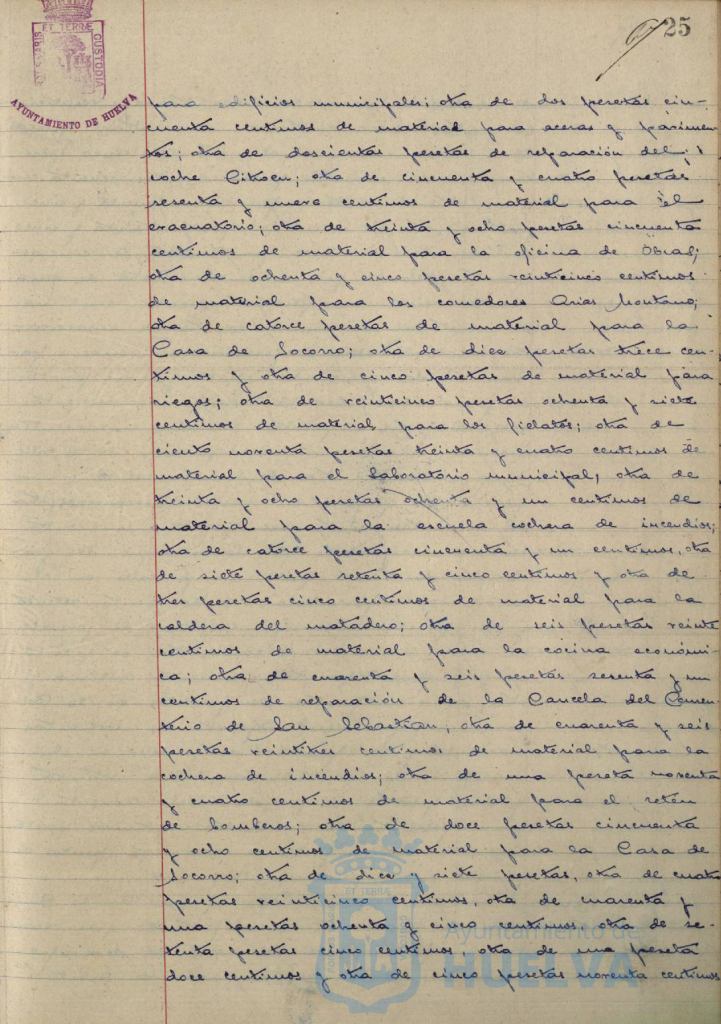 25
PORTUS MARIS ET TERRÆ CUSTODIA
AYUNTAMIENTO DE HUELVA
para edificios municipales; otra de dos pesetas cin-
cuenta centimos de material para aceras y pavimen-
tos; otra de doscientas pesetas de reparación del
coche Citroen; otra de cincuenta y cuatro pesetas
sesenta y nueve centimos de material para el
evacuatorio; otra de treinta y ocho pesetas cincuenta
centimos de material para la oficina de Obras;
otra de ochenta y cinco pesetas veinticinco centimos
de material para los comedores Arias Montano;
otra de catorce pesetas de material para la
Casa de Socorro; otra de diez pesetas trece cen-
timos y otra de cinco pesetas de material para
riegos; otra de veinticinco pesetas ochenta y siete
centimos de material para los fielatos; otra de
ciento noventa pesetas treinta y cuatro centimos de
material para el Laboratorio municipal; otra de
treinta y ocho pesetas ochenta y un centimos de
material para la escuela cochera de incendios;
otra de catorce pesetas cincuenta y un centimos, otra
de siete pesetas setenta y cinco centimos y otra de
tres pesetas cinco centimos de material para la
caldera del matadero; otra de seis pesetas veinte
centimos de material para la cocina económi-
ca; otra de cuarenta y seis pesetas sesenta y un
centimos de reparación de la Cancela del Cemen-
terio de San Sebastian, otra de cuarenta y seis
pesetas veintitres centimos de material para la
cochera de incendios; otra de una peseta noventa
y cuatro centimos de material para el retén
de bomberos; otra de doce pesetas cincuenta
y ocho centimos de material para la Casa de
Socorro; otra de diez y siete pesetas, otra de cuatro
pesetas veinticinco centimos, otra de cuarenta y
una pesetas ochenta y cinco centimos, otra de se-
tenta pesetas cinco centimos, otra de una peseta
doce centimos y otra de cinco pesetas noventa centimos
ET TERRÆ
Ayuntamiento de
HUELVA